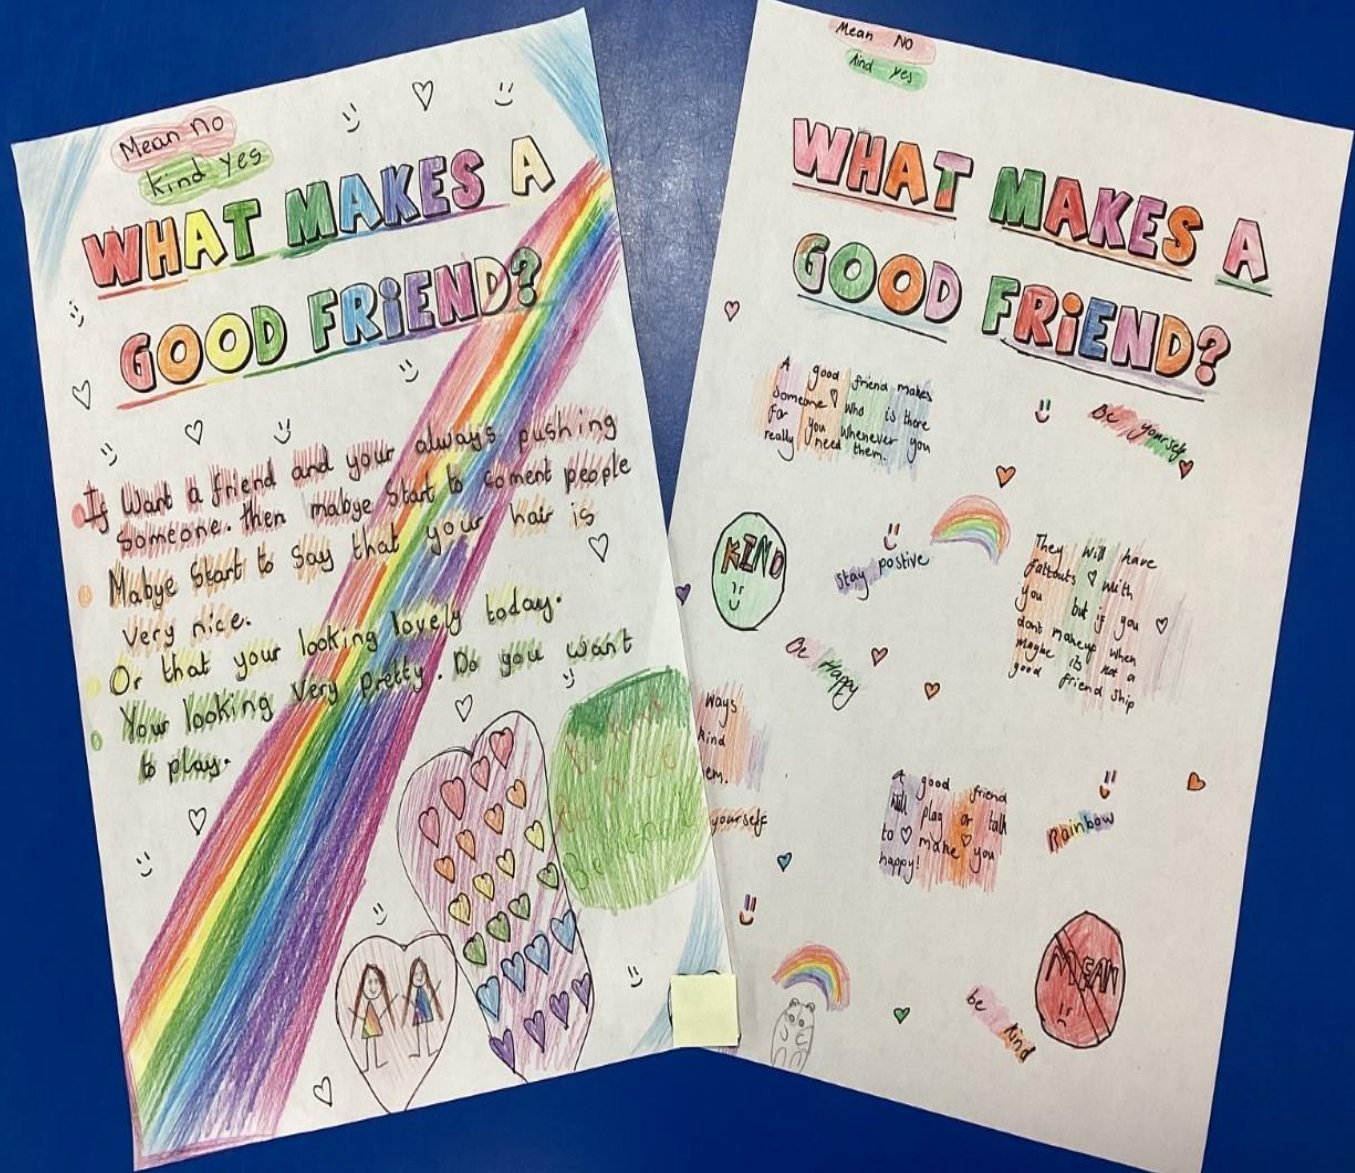 Mean No
Kind Yes
WHAT MAKES A
GOOD FRIEND?
If Want a friend and your always pushing
Someone. then mabye Start to coment people
Mabye Start to say that your hair is
very nice.
Or that your looking lovely today.
Your looking very pretty. Do you want
to play.
Be kind
Mean NO
kind yes
WHAT MAKES A
GOOD FRIEND?
A good friend makes
someone who is there
for you whenever you
really need them.
Be yourself
KIND
stay postive
They will have
fallouts with
you but if you
dont makeup when
maybe its not a
good friend ship
Be Happy
ways
kind
em.
yourself
A good friend
will play or talk
to make you
happy!
Rainbow
MEAN
be kind